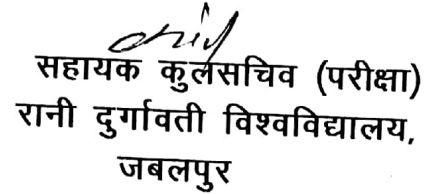 सहायक कुलसचिव (परीक्षा)
रानी दुर्गावती विश्वविद्यालय,
जबलपुर